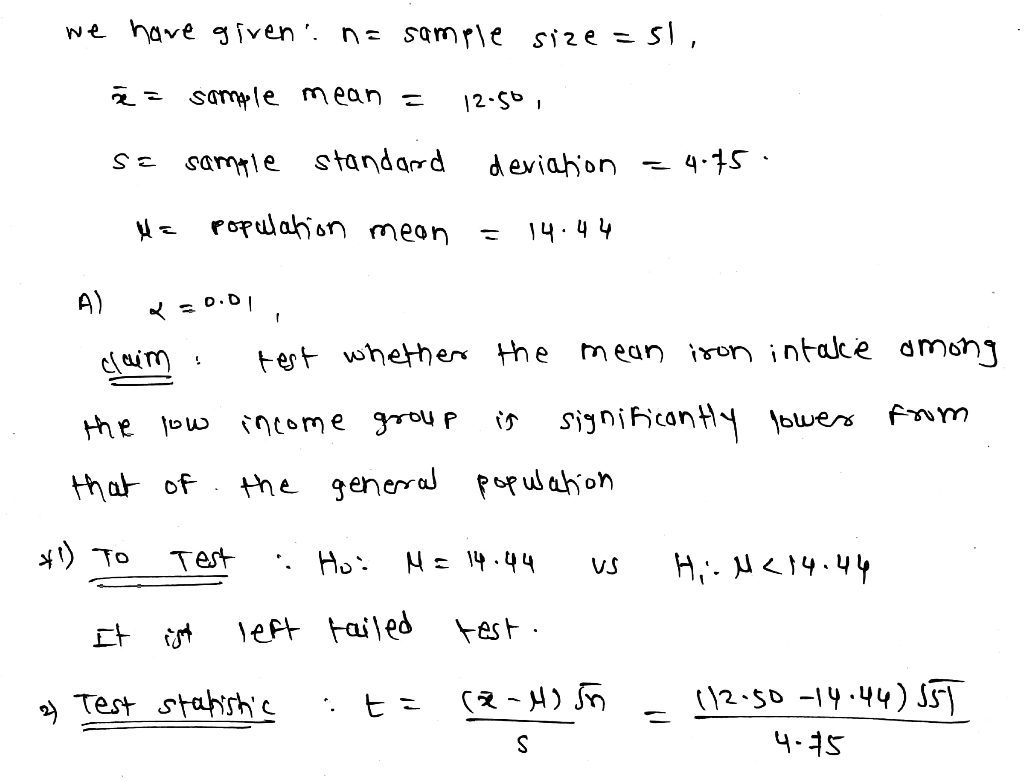 we have given : n = sample size = 51 ,
x̄ = sample mean = 12.50 ,
s = sample standard deviation = 4.75 .
μ = population mean = 14.44
A) α = 0.01 ,
claim : test whether the mean iron intake among
the low income group is significantly lower from
that of the general population
*1) To Test : H₀ : μ = 14.44 vs H₁ : μ < 14.44
It ist left tailed test .
2) Test statistic : t = (x̄ - μ) √n / s = (12.50 - 14.44) √51 / 4.75